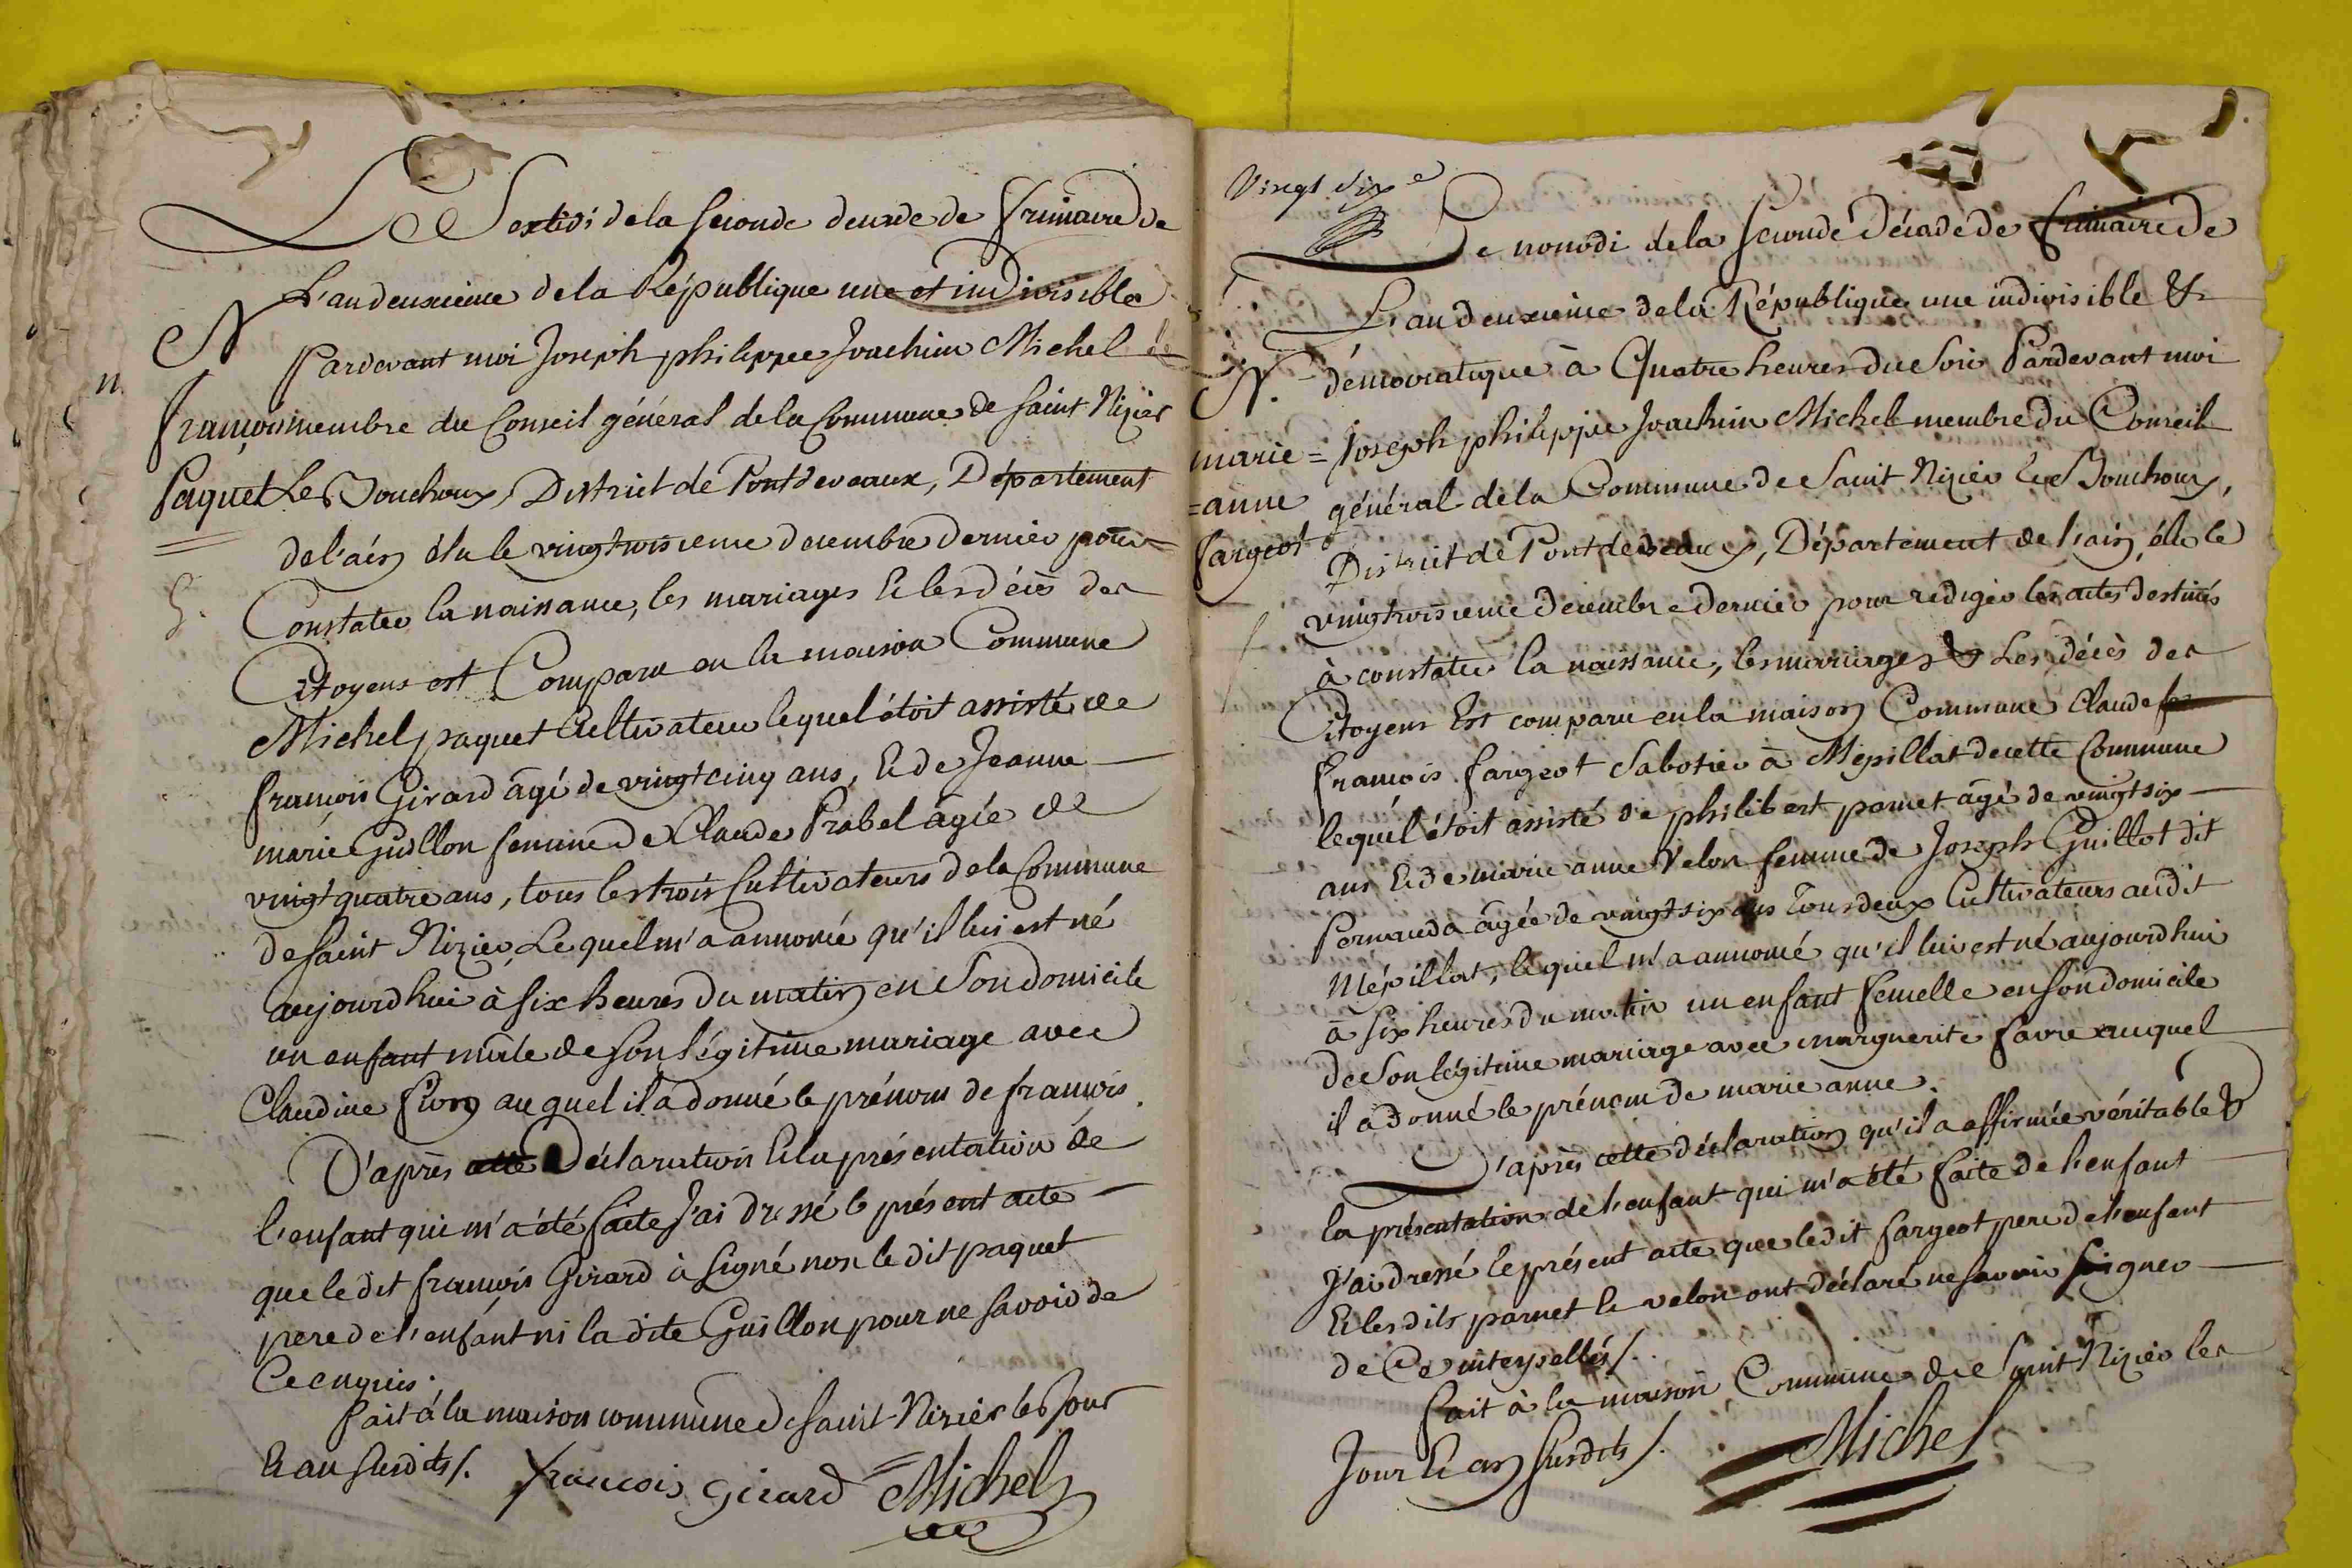 Le Sextidi de la seconde decade de frimaire de
L'an deuxieme de la République une et indivisible
N
Pardevant moi Joseph philippe Joachim Michel
n.
françois membre du Conseil général de la Commune de Saint Nizier
Paquet Le Bouchoux, District de Pontdevaux, Département
de l'ain élu le vingtroisieme decembre dernier pour
Constater la naissance, les mariages & les décès des
Citoyens est Comparu en la maison Commune
Michel paquet Cultivateur lequel étoit assisté de
françois Girard âgé de vingt cinq ans, & de Jeanne
marie Guillon femme de Claude Prabel âgée de
vingt quatre ans, tous les trois Cultivateurs de la Commune
de Saint Nizier, Lequel m'a annoncé qu'il lui est né
aujourdhui à six heures du matin en Son domicile
un enfant mâle de son légitime mariage avec
Claudine auquel il a donné le prénom de françois.
D'après cette Déclaration & la présentation de
l'enfant qui m'a été faite J'ai dressé le présent acte
que le dit françois Girard à signé non le dit paquet
pere de l'enfant ni la dite Guillon pour ne savoir de
Ce enquis.
fait à la maison commune de Saint-Nizier les Jour
& an susdits/.
françois Girard Michel
Vingt six e
Le nonodi de la seconde Décade de frimaire de
L'an deuxieme de la République une indivisible &
N. démocratique à Quatre heures du soir Pardevant moi
marie = Joseph philippe Joachim Michel membre du Conseil
=anne général de la Commune de Saint Nizier le Bouchoux,
fargeot District de Pontdevaux, Département de l'ain, élu le
vingtroisieme decembre dernier pour rediger les actes destinés
à constater la naissance, les mariages & Les décès des
Citoyens Est comparu en la maison Commune Claude
françois fargeot Sabotier à Mépillat de cette Commune
lequel étoit assisté de philibert parnet âgé de vingt six
ans & de marie anne Velon femme de Joseph Guillot dit
Pernauda âgée de vingt six ans Tous deux Cultivateurs audit
Mépillat, lequel m'a annoncé qu'il lui est né aujourdhui
à six heures du matin un enfant femelle en son domicile
de Son légitime mariage avec marguerite favre auquel
il a donné le prénom de marie anne.
D'après cette déclaration qu'il a affirmée véritable &
la présentation de l'enfant qui m'a été faite de l'enfant
J'ai dressé le présent acte que le dit fargeot pere de l'enfant
& les dits parnet & velon ont déclaré ne savoir signer
de Ce interpellés/.
fait à la maison Commune de Saint Nizier les
Jour & an susdits/.
Michel